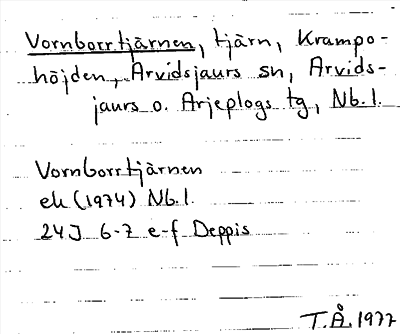 Vornborrtjärnen, tjärn, Krampo-
höjden, Arvidsjaurs sn, Arvids-
jaurs o. Arjeplogs tg, Nb. l.
Vornborrtjärnen
ek (1974) Nb. l.
24J 6-7 e-f Deppis
T.Å. 1977